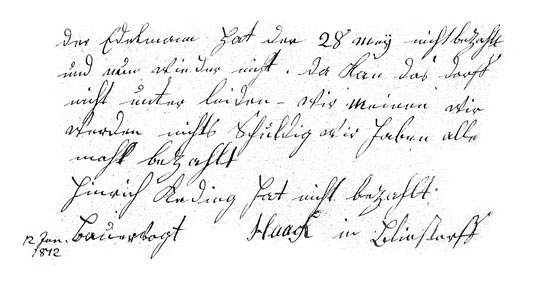 der Edelmann hat den 28 mey nicht bezahlt
und nun wieder nicht. Da kan das dorff
nicht unter leiden - wir meinen wir
werden nichts Schuldig wir haben alle
mahl bezahlt
Hinrich Reding hat nicht bezahlt.
Bauervogt Haack in Blinstorff
12 Jan.
1812